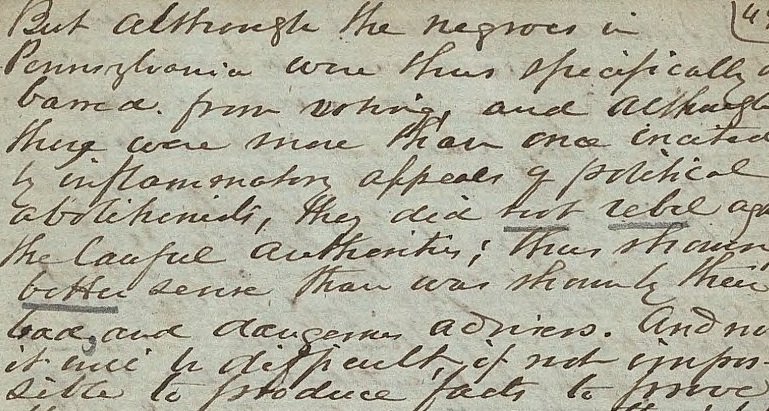 But although the negroes in
Pennsylvania were thus specifically
barred from voting, and although
they were more than once incited
by inflammatory appeals of political
abolitionists, they did not rebel
the lawful authorities; thus showing
better sense than was shown by their
bad, and dangerous advisers. And
it will be difficult, if not impos-
sible to produce facts to prove